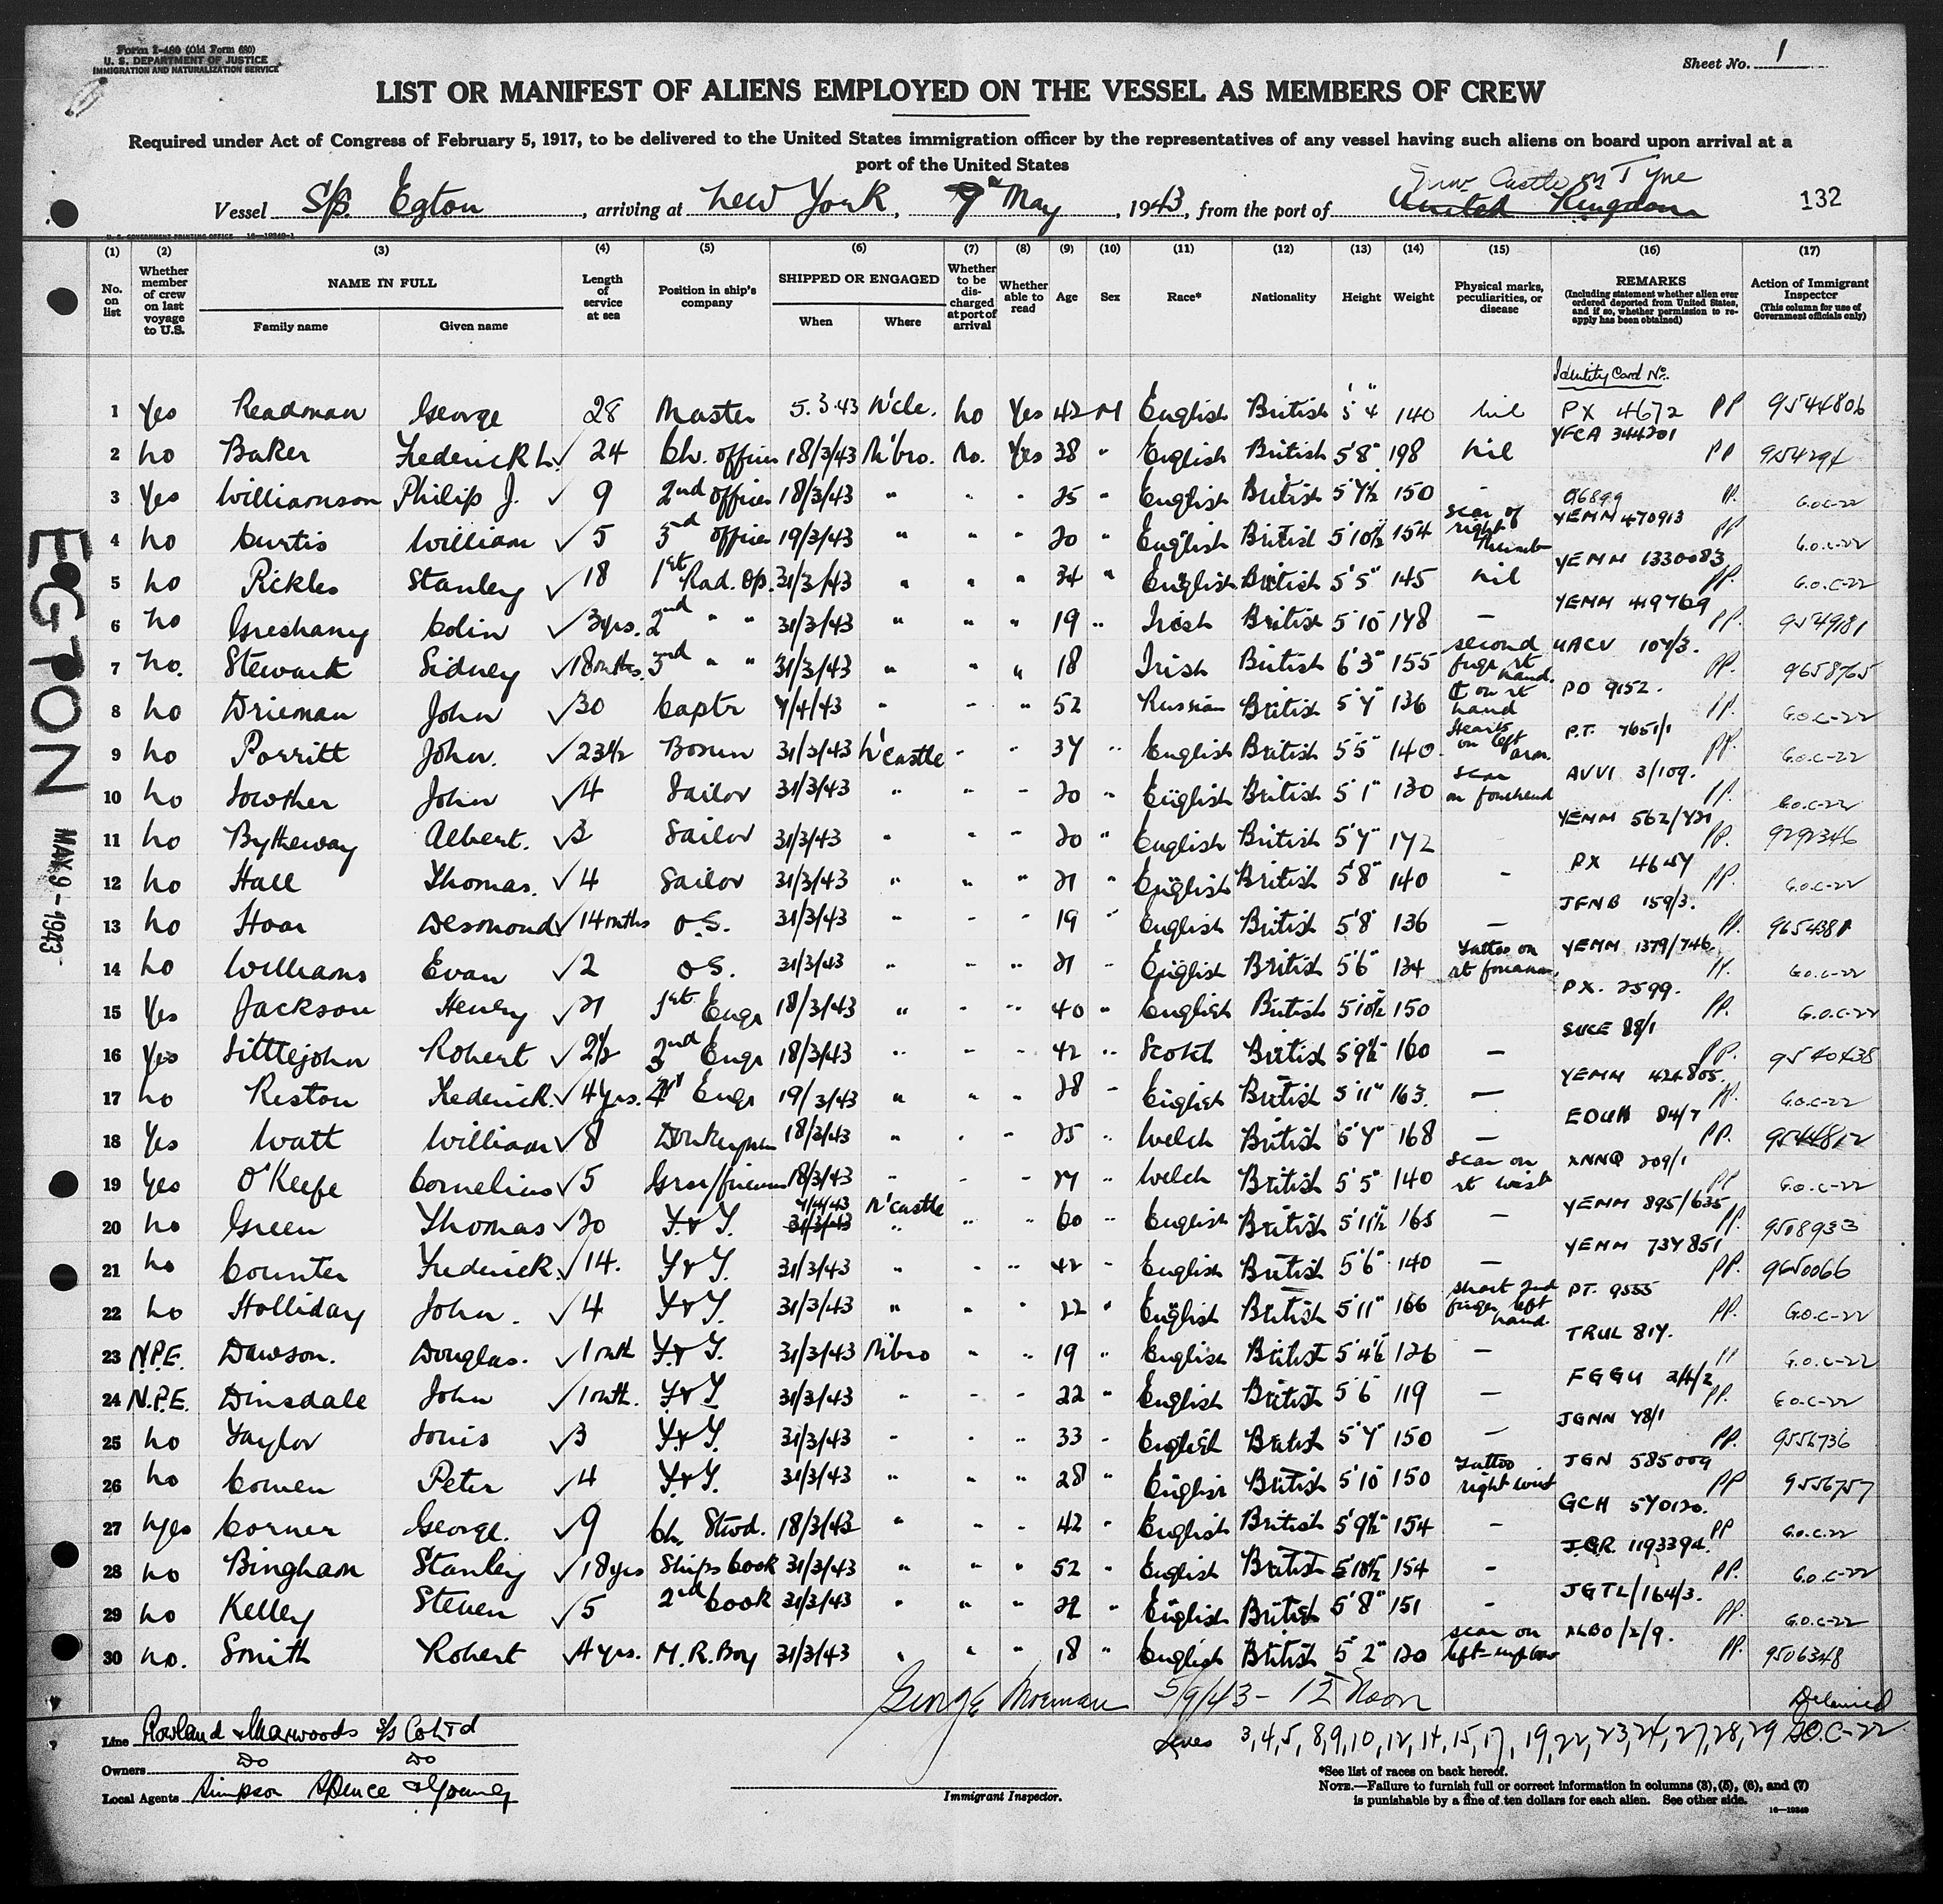 Form I-480 (Old Form 680)
U. S. DEPARTMENT OF JUSTICE
IMMIGRATION AND NATURALIZATION SERVICE
Sheet No. 1
LIST OR MANIFEST OF ALIENS EMPLOYED ON THE VESSEL AS MEMBERS OF CREW
Required under Act of Congress of February 5, 1917, to be delivered to the United States immigration officer by the representatives of any vessel having such aliens on board upon arrival at a
port of the United States
Castle on Tyne
Vessel S/S. Egton, arriving at New York, 9 May, 1943, from the port of United Kingdom
132
U. S. GOVERNMENT PRINTING OFFICE 16-19240-1
(1) (2) (3) (4) (5) (6) (7) (8) (9) (10) (11) (12) (13) (14) (15) (16) (17)
No. on list
Whether member of crew on last voyage to U.S.
NAME IN FULL
Family name Given name
Length of service at sea
Position in ship's company
SHIPPED OR ENGAGED
When Where
Whether to be discharged at port of arrival
Whether able to read
Age Sex Race* Nationality Height Weight
Physical marks, peculiarities, or disease
REMARKS
(Including statement whether alien ever ordered deported from United States, and if so, whether permission to re-apply has been obtained)
Action of Immigrant Inspector
(This column for use of Government officials only)
Identity Card No.
1 Yes Readman George 28 Master 5.3.43 N'cle. No Yes 42 M English British 5' 4" 140 nil PX 4672 PP 9544806
2 No Baker Frederick L. 24 Ch. officer 18/3/43 M'bro. No. Yes 38 " English British 5'8" 198 nil YFCA 344201 PP
3 Yes Williamson Philip J. 9 2nd officer 18/3/43 " - " 25 " English British 5'7½ 150 - PP. G.O.C-22
4 No Curtis William 5 3rd officer 19/3/43 " - " 20 " English British 5'10½ 154 scar of right thumb YEMM 470913 PP G.O.C-22
5 No Pickles Stanley 18 1st Rad. Op. 31/3/43 " - " 34 " English British 5'5" 145 nil YEMM 1330083 PP. G.O.C-22
6 No Colin 3yrs. 2nd " " 31/3/43 " " " 19 " Irish British 5'10 148 — YEMM 419769 PP. 9549181
7 No. Stewart Sidney 18mths. 3rd " " 31/3/43 " - " 18 Irish British 6'3" 155 second fingr rt hand. UACV 107/3. PP. 9658765
8 No Drieman John 30 Capts 7/4/43 " - " 52 Russian British 5'7" 136 on rt hand PO 9152. PP. G.O.C-22
9 No Porritt John. 23½ Bosun 31/3/43 N'castle - - 37 " English British 5'5" 140 Hearts on left arm. P.T. 7651/1 PP. G.O.C-22
10 No Lowther John 4 Sailor 31/3/43 " " - 20 " English British 5'1" 130 scar on forehead AVVI 3/109. PP. G.O.C-22
11 No Bytheway Albert. 3 Sailor 31/3/43 " - " 20 " English British 5'7" 172 PP. 9292346
12 No Hall Thomas. 4 Sailor 31/3/43 " " " 21 " English British 5'8" 140 - PX PP. G.O.C-22
13 No Hoar Desmond 14mths O.S. 31/3/43 " - " 19 " English British 5'8 136 — JFNB 159/3. PP.
14 No Williams Evan 2 O.S. 31/3/43 " - " 21 - English British 5'6" 134 Tattoo on rt forearm YEMM 1379/746 PP. G.O.C-22
15 Yes Jackson Henry 21 1st Engr 18/3/43 " - " 40 " English British 5'10½ 150 PX. 2599. PP. G.O.C-22
16 Yes Littlejohn Robert 2½ 2nd Engr 18/3/43 " - - 42 " Scotch British 5'9½ 160 — SUCE 88/1 PP. 9540438
17 No Reston Frederick. 4yrs. Engr 19/3/43 " - " 28 - English British 5'11" 163. — YEMM 424805 PP. G.O.C-22
18 Yes Watt William 8 Donkeyman 18/3/43 " - - 25 " Welch British 5'7" 168 — EOUH 84/7 PP. 9544812
19 Yes O'Keefe Cornelius 5 Grsr/fireman 18/3/43 " - " " Welch British 5'5" 140 scar on rt wrist XNNQ 209/1 PP G.O.C-22
20 No Green Thomas 20 F & T. 7/4/43 31/3/43 N'castle " " 60 " English British 5'11½ 165 — YEMM 895/635 PP. 9508933
21 No Counter Frederick. 14. F & T. 31/3/43 " - " 42 - English British 5'6" 140 — YEMM 737851 PP. 9650066
22 No Holliday John. 4 F & T. 31/3/43 " - " 22 " English British 5'11" 166 short 2nd finger left hand PT. 9555 PP. G.O.C-22
23 N.P.E. Dawson. Douglas. 1 mth F & T. 31/3/43 M'bro " " 19 " English British 5'4½ 126 — TRUL 817. PP G.O.C-22
24 N.P.E. Dinsdale John 1 mth. F & T 31/3/43 " - - 22 " English British 5'6 119 — FGGU PP. G.O.C-22
25 No Taylor Louis 3 F & T. 31/3/43 - - " 33 - English British 5'7" 150 — JGNN 78/1 PP. 9556736
26 No Comen Peter 4 F & T. 31/3/43 " " " 28 " English British 5'10" 150 Tattoo right wrist JGN 585009 PP 9556757
27 Yes Corner George. 9 Ch. Stwd. 18/3/43 " - - 42 - English British 5'9½" 154 - GCH 570120. PP G.O.C-22
28 No Bingham Stanley 18yrs Ships Cook 31/3/43 " " " 52 " English British 5'10½ 154 - JGR 1193394. PP. G.O.C-22
29 No Kelley Steven 5 2nd Cook 31/3/43 " " " " English British 5'8" 151 - JGTL/164/3. PP. G.O.C-22
30 No. Smith Robert 4yrs. M.R. Boy 31/3/43 " " " 18 " English British 5'2" 120 scar on left PP. 9506348
5/9/43 - 12 Noon
Detained
Lines 3,4,5, 8,9,10,12,14,15,17, 19,22,23,24,27,28,29 G.O.C-22
Line Rowland & Marwoods S/S Co Ltd
Owners Do Do
Local Agents Simpson Spence & Young
Immigrant Inspector.
*See list of races on back hereof.
NOTE.—Failure to furnish full or correct information in columns (3), (5), (6), and (7)
is punishable by a fine of ten dollars for each alien. See other side.
16-19240
EGTON
MAY 9-1943